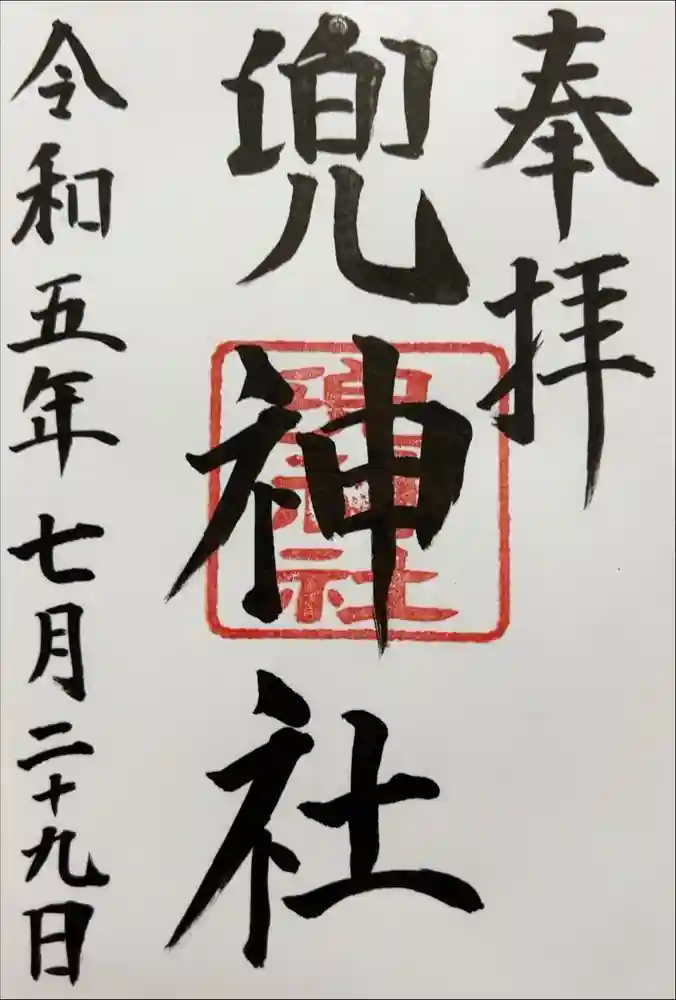 奉拝
兜神社
令和五年七月二十九日